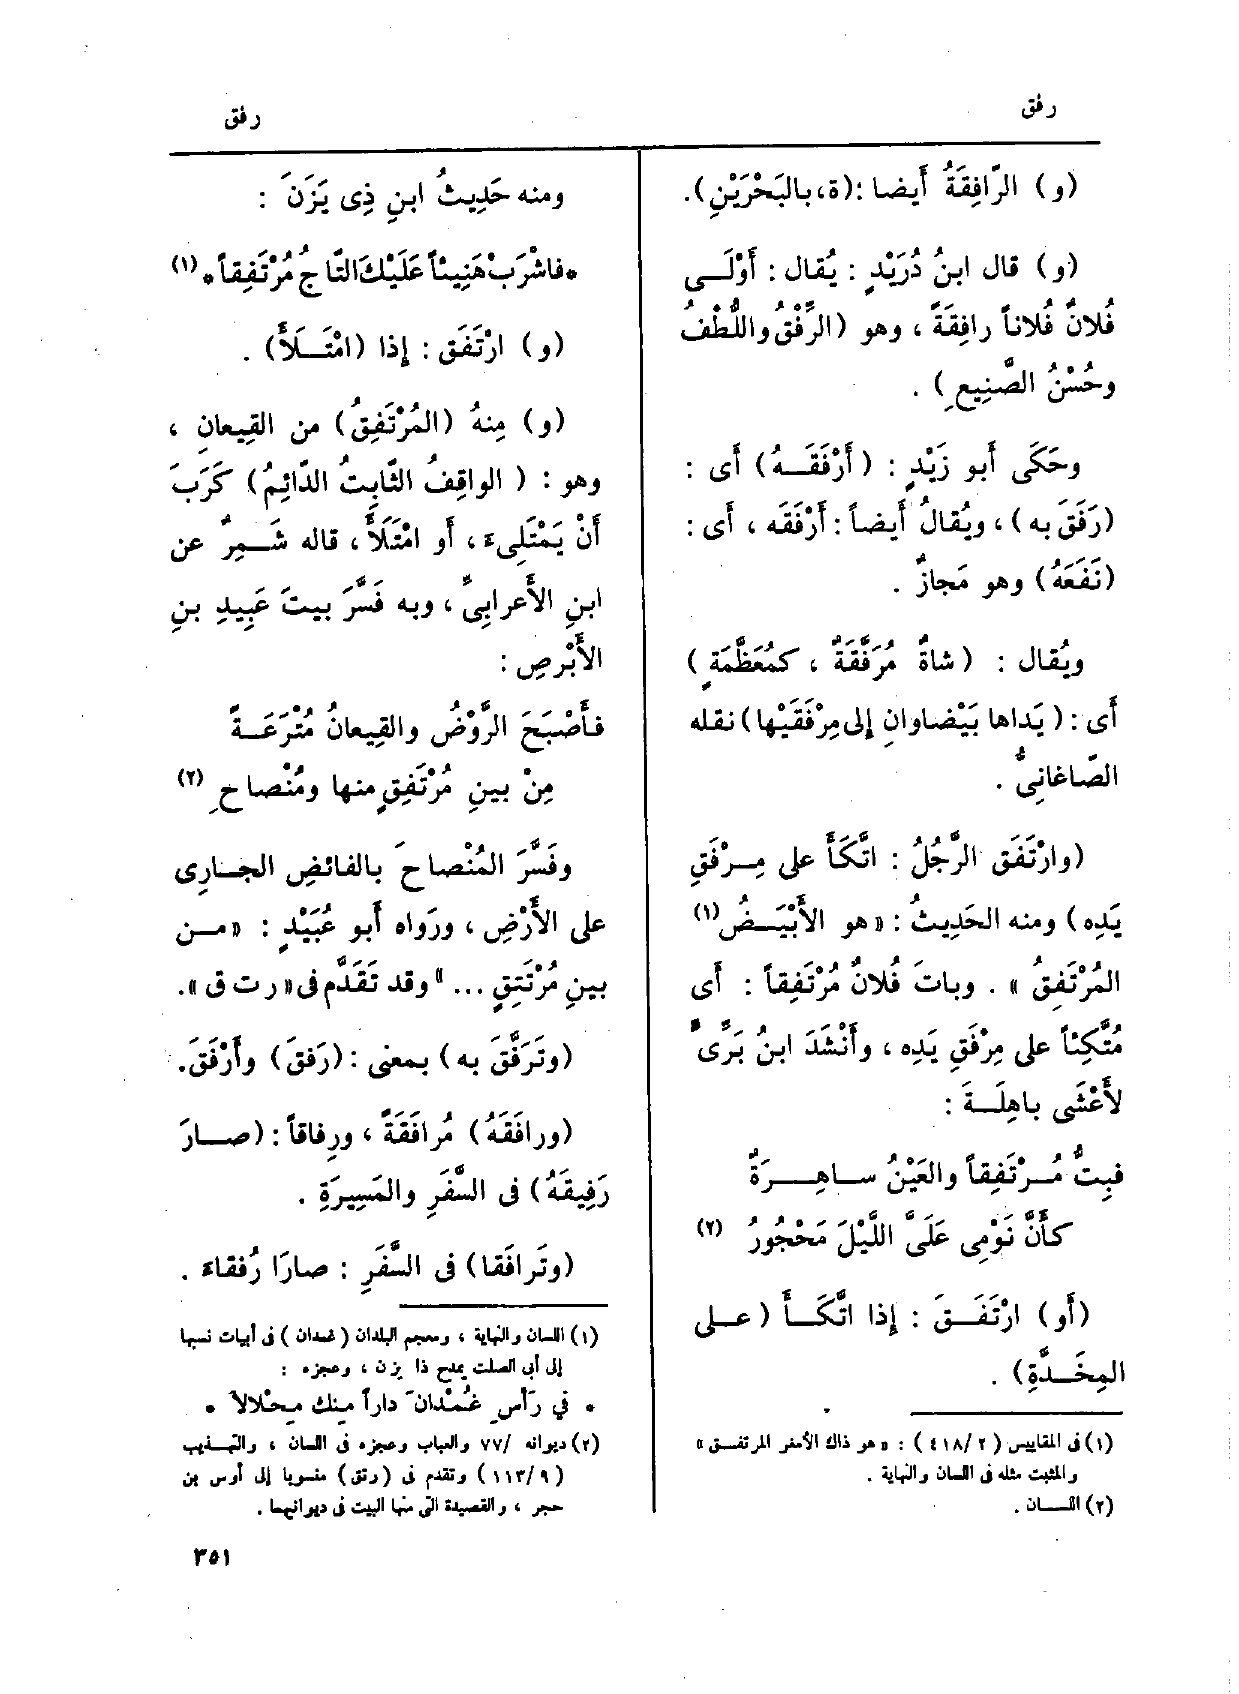 رفق
(و) الرّافِقَةُ أَيضا : (ة، بالبَحْرَيْنِ).
(و) قال ابنُ دُرَيْدٍ : يُقال : أَوْلَى
فُلانٌ فُلاناً رافِقَةً ، وهو (الرِّفْقُ واللُّطْفُ
وحُسْنُ الصَّنِيعِ) .
وحَكَى أَبو زَيْدٍ : (أَرْفَقَهُ) أَى :
(رَفَقَ به) ، ويُقالُ أَيضاً : أَرْفَقَه ، أَى :
(نَفَعَهُ) وهو مَجازٌ .
ويُقال : (شاةٌ مُرَفَّقَةٌ ، كمُعَظَّمَةٍ)
أَى : (يَداها بَيْضاوانِ إِلى مِرْفَقَيْها) نقله
الصّاغانِىُّ .
(وارْتَفَقَ الرَّجُلُ : اتَّكَأَ على مِرْفَقِ
يَدِه) ومنه الحَدِيثُ : «هو الأَبْيَضُ (١)
المُرْتَفِقُ » . وباتَ فُلانٌ مُرْتَفِقاً : أَى
مُتَّكِئاً على مِرْفَقِ يَدِه ، وأَنْشَدَ ابنُ بَرِّىٌّ
لأَعْشَى باهِلَةَ :
فبِتُّ مُرْتَفِقاً والعَيْنُ ساهِرَةٌ
كأَنَّ نَوْمِى عَلَىَّ اللَّيْلَ مَحْجُورُ (٢)
(أَو) ارْتَفَقَ : إِذا اتَّكَأَ (على
المِخَدَّةِ) .
(١) فى المقاييس (٤١٨/٢) : «هو ذاك الأمغر المرتفق»
والمثبت مثله فى اللسان والنهاية .
(٢) اللسان .
رفق
ومنه حَدِيثُ ابنِ ذِى يَزَنَ :
*فاشْرَبْ هَنِيئاً عَلَيْكَ التّاجُ مُرْتَفِقاً* (١)
(و) ارْتَفَقَ : إِذا (امْتَلَأَ) .
(و) مِنهُ (المُرْتَفِقُ) من القِيعانِ ،
وهو : (الواقِفُ الثّابِتُ الدّائِمُ) كَرَبَ
أَنْ يَمْتَلِىءَ ، أَو امْتَلَأَ ، قاله شَمِرٌ عن
ابنِ الأَعرابِىِّ ، وبه فَسَّرَ بيتَ عَبِيدِ بنِ
الأَبْرصِ :
فأَصْبَحَ الرَّوْضُ والقِيعانُ مُتْرَعَةً
مِنْ بينِ مُرْتَفِقٍ منها ومُنْصاحِ (٢)
وفَسَّرَ المُنْصاحَ بالفائضِ الجارِى
على الأَرْضِ ، ورَواه أَبو عُبَيْدٍ : «من
بينِ مُرْتَتِقٍ ... » وقد تَقَدَّم فى «ر ت ق» .
(وتَرَفَّقَ به) بمعنى : (رَفقَ) وأَرْفَقَ.
(ورافَقَهُ) مُرافَقَةً ، ورِفاقاً : (صارَ
رَفِيقَهُ) فى السَّفَرِ والمَسِيرَةِ .
(وتَرافَقا) فى السَّفَرِ : صارَا رُفقاءَ .
(١) اللسان والنهاية ، ومعجم البلدان (غمدان) فى أبيات نسبها
إلى أبى الصلت يمدح ذا يزن ، وعجزه :
* في رَأسِ غُمْدانَ داراً مِنك مِحْلالاَ *
(٢) ديوانه /٧٧ والعباب وعجزه فى اللسان ، والتهذيب
(١١٣/٩) وتقدم فى (رتق) منسوبا إلى أوس بن
حجر ، والقصيدة التى منها البيت فى ديوانهما .
٣٥١